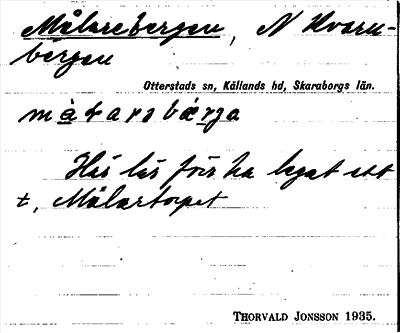 Målarebergen, N Kvarn-
bergen
Otterstads sn, Källands hd, Skaraborgs län.
måɫarabärga
Här lär förr ha legat ett
t, Målartorpet
THORVALD JONSSON 1935.